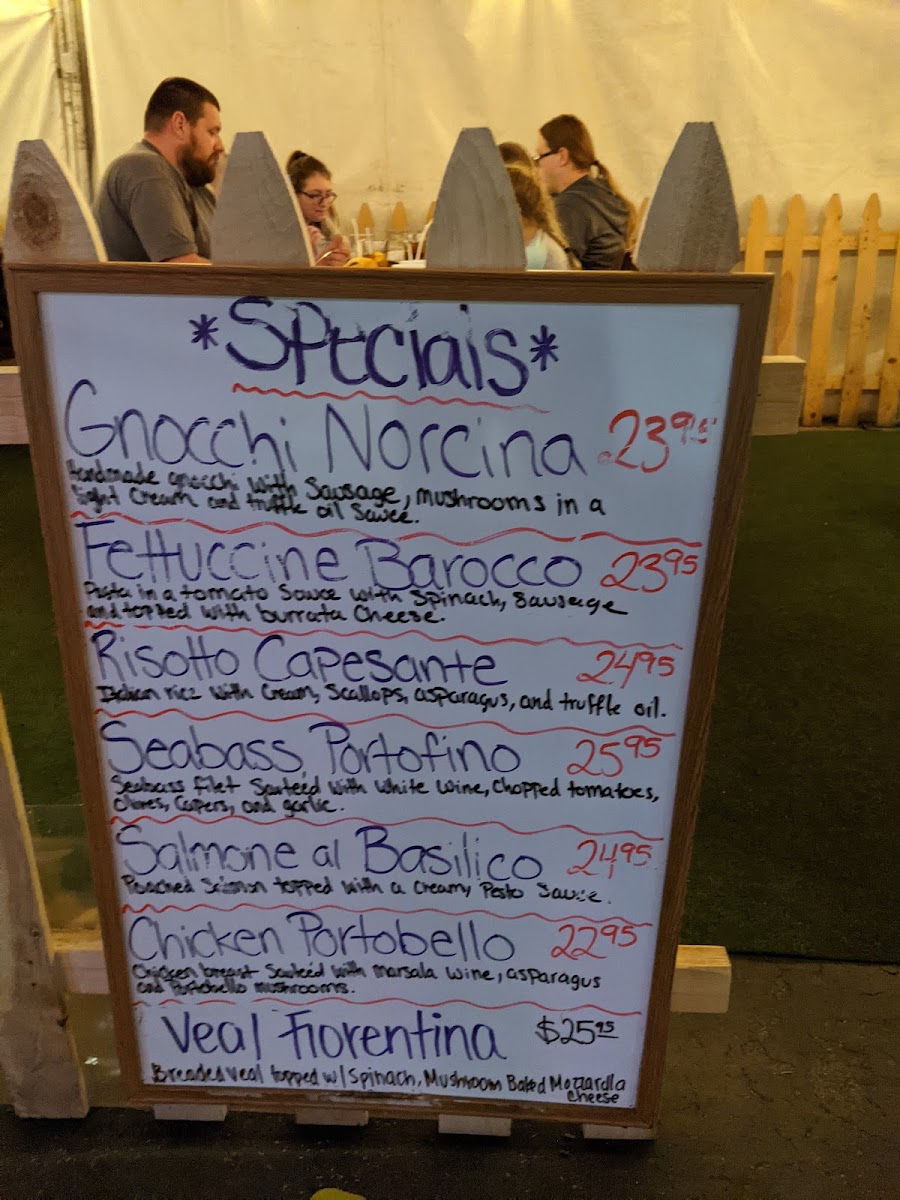 *Specials*
Gnocchi Norcina 23.95
Handmade gnocchi with Sausage, mushrooms in a
light Cream and truffle oil Sauce.
Fettuccine Barocco 23 95
Pasta in a tomato Sauce with Spinach, Sausage
and topped with burrata Cheese.
Risotto Capesante 24 95
Italian rice with Cream, Scallops, asparagus, and truffle oil.
Seabass Portofino 25 95
Seabass filet Sauteéd with White Wine, Chopped tomatoes,
Olives, Capers, and garlic.
Salmone al Basilico 24 95
Poached Salmon topped with a Creamy Pesto Sauce.
Chicken Portobello 22 95
Chicken breast Sauteéd with Marsala Wine, asparagus
and Portobello mushrooms.
Veal Fiorentina $25 95
Breaded veal topped w/ Spinach, Mushroom Baked Mozzarella
Cheese